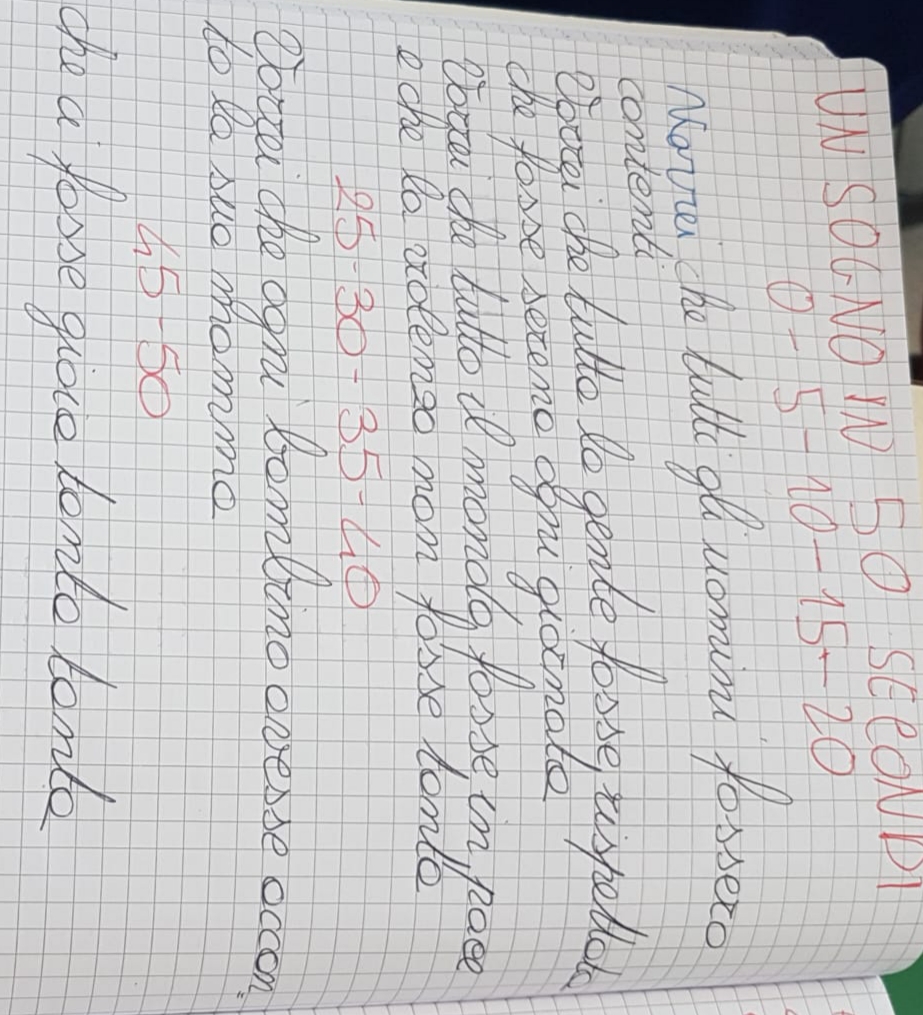 UN SOGNO IN 50 SECONDI
0 - 5 - 10 - 15 - 20
Vorrei che tutti gli uomini fossero
contenti
Vorrei che tutta la gente fosse rispettata
che fosse sereno ogni giornata
Vorrei che tutto il mondo fosse in pace
e che la violenza non fosse tanta
25 - 30 - 35 - 40
Vorrei che ogni bambino avesse accan=
to la sua mamma
45 - 50
che ci fosse gioia tanta tanta